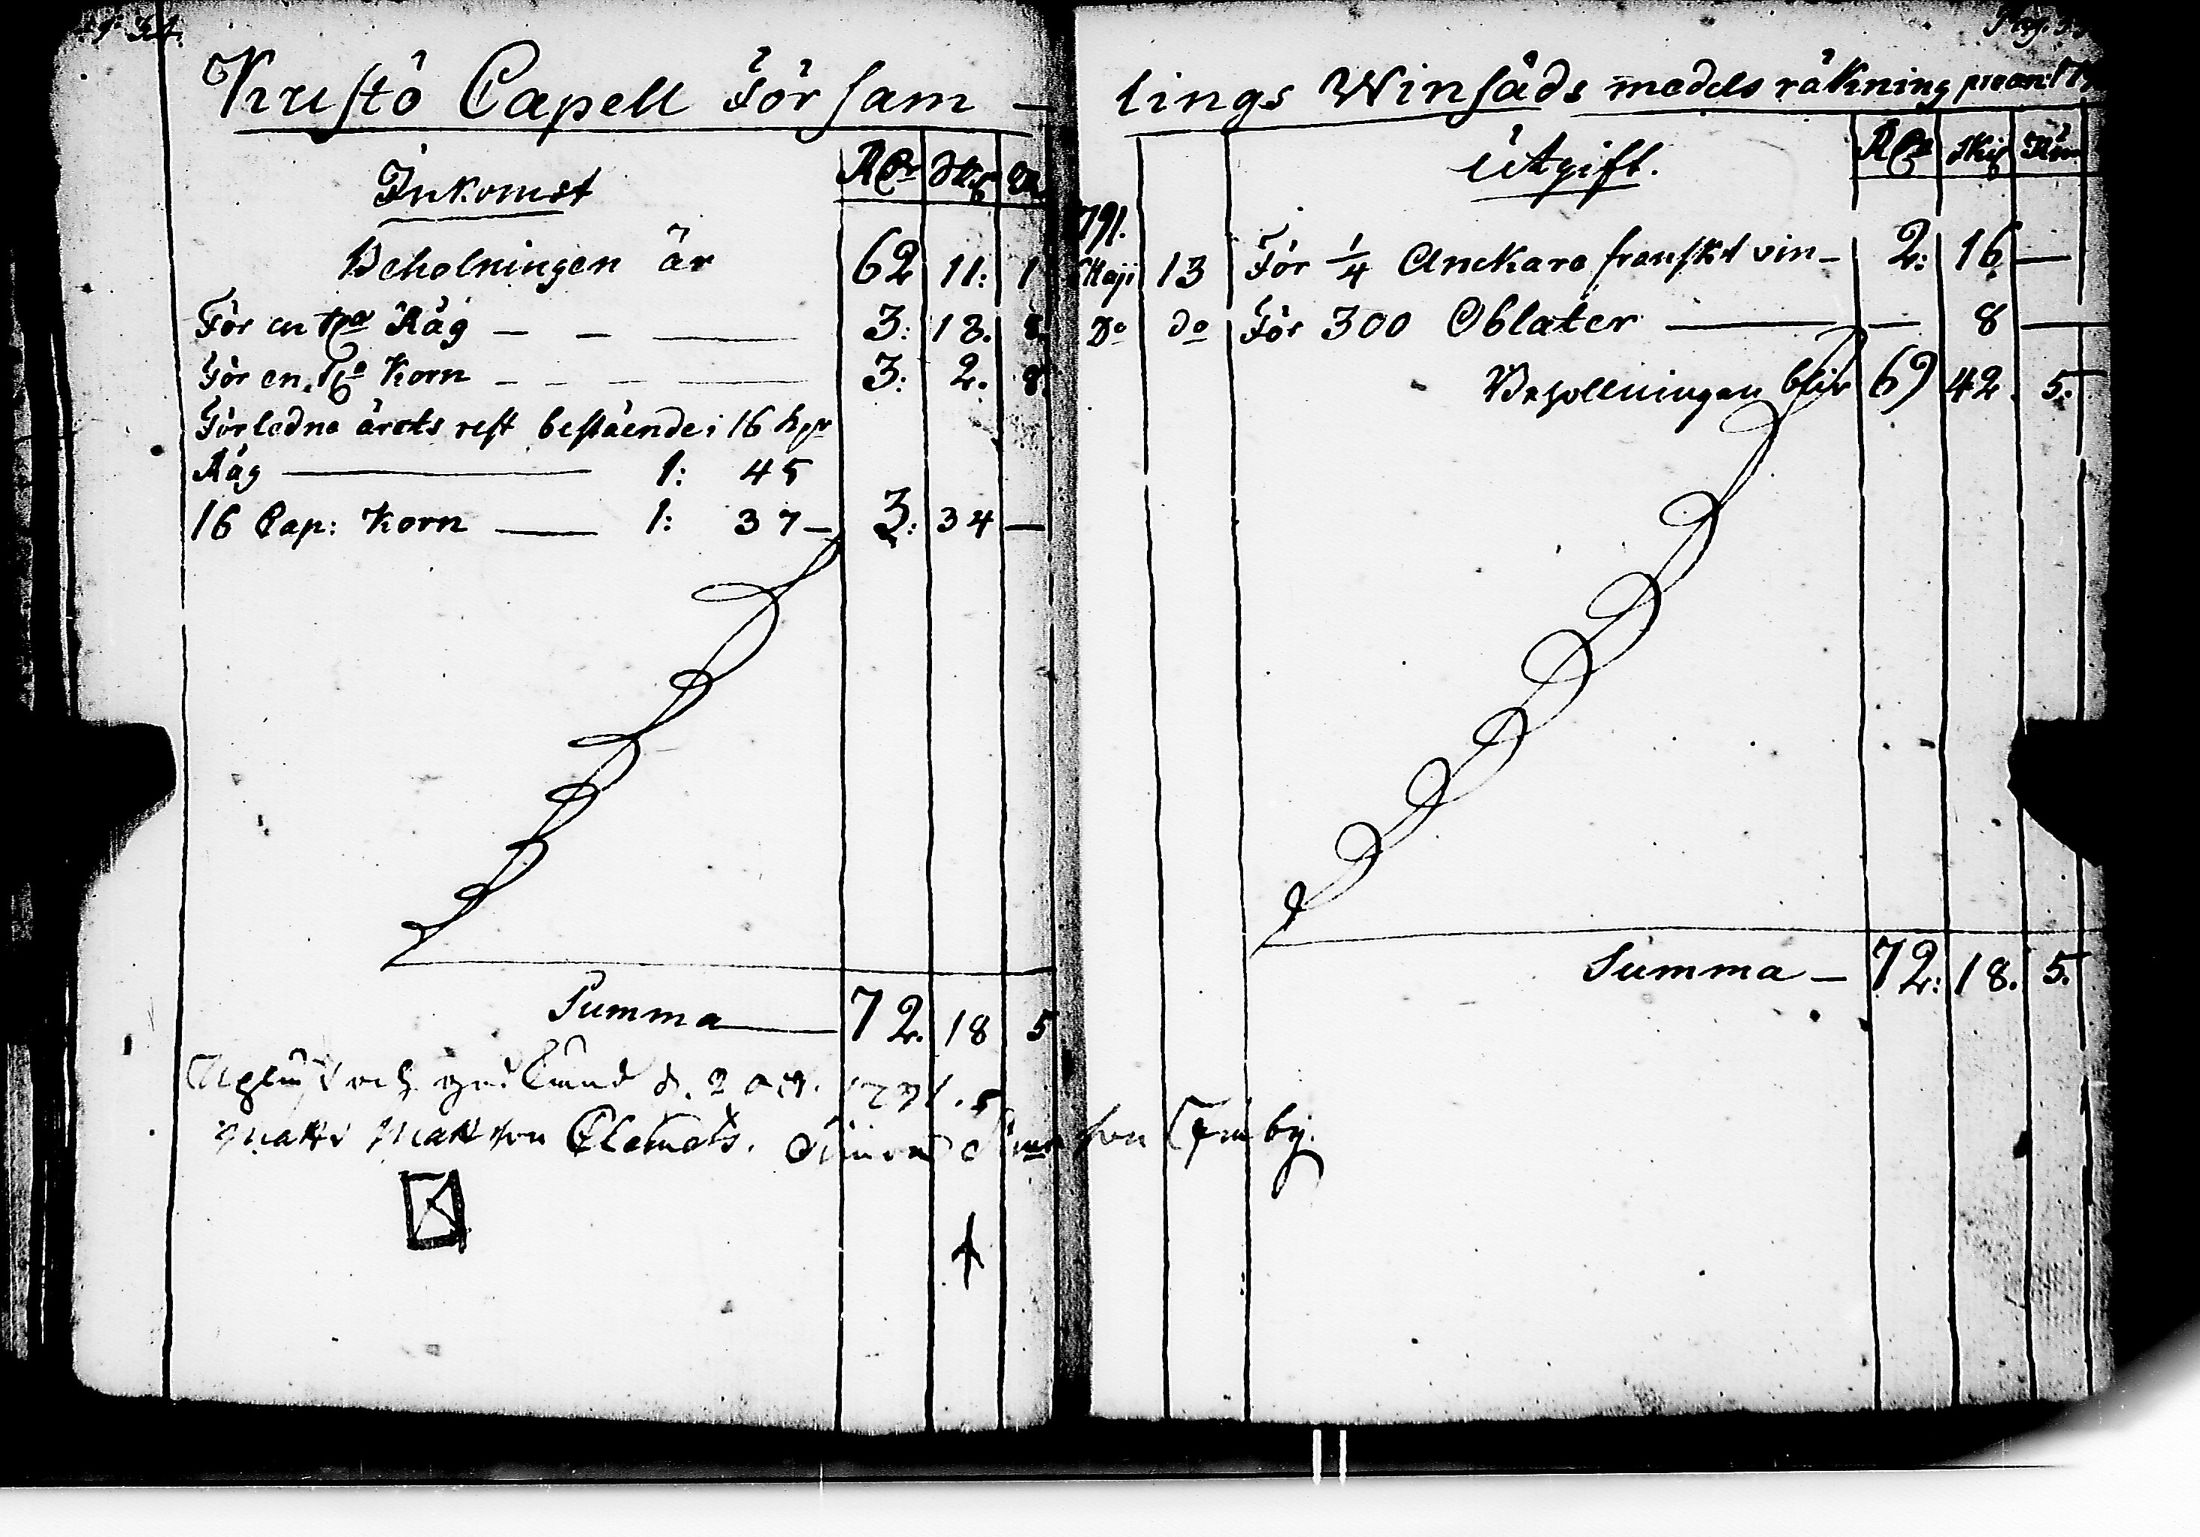 34.
Kustö Capell Församlings Winsäds medels räkning pro an:
Inkomst
Rdr Skg
Beholningen är 62 11: 1
För en Tna Råg — — — 3: 18. 8.
För en Tna Korn — — — 3: 2. 8.
Förledne årets rest bestående i 16 kpr
Råg — 1: 45
16 Cap: Korn — 1: 37 — 3: 34 —
Summa — 72. 18 5
d. 2 oct. 1791.
Matts Mattson Clemets. Simon
Pag.
Utgift.
Rdr Skg
791.
Maji 13 För 1/4 Anckare franskt vin — 2: 16 —
Do do För 300 Oblater — — 8 —
Behollningen blir 69 42. 5.
Summa — 72: 18. 5.